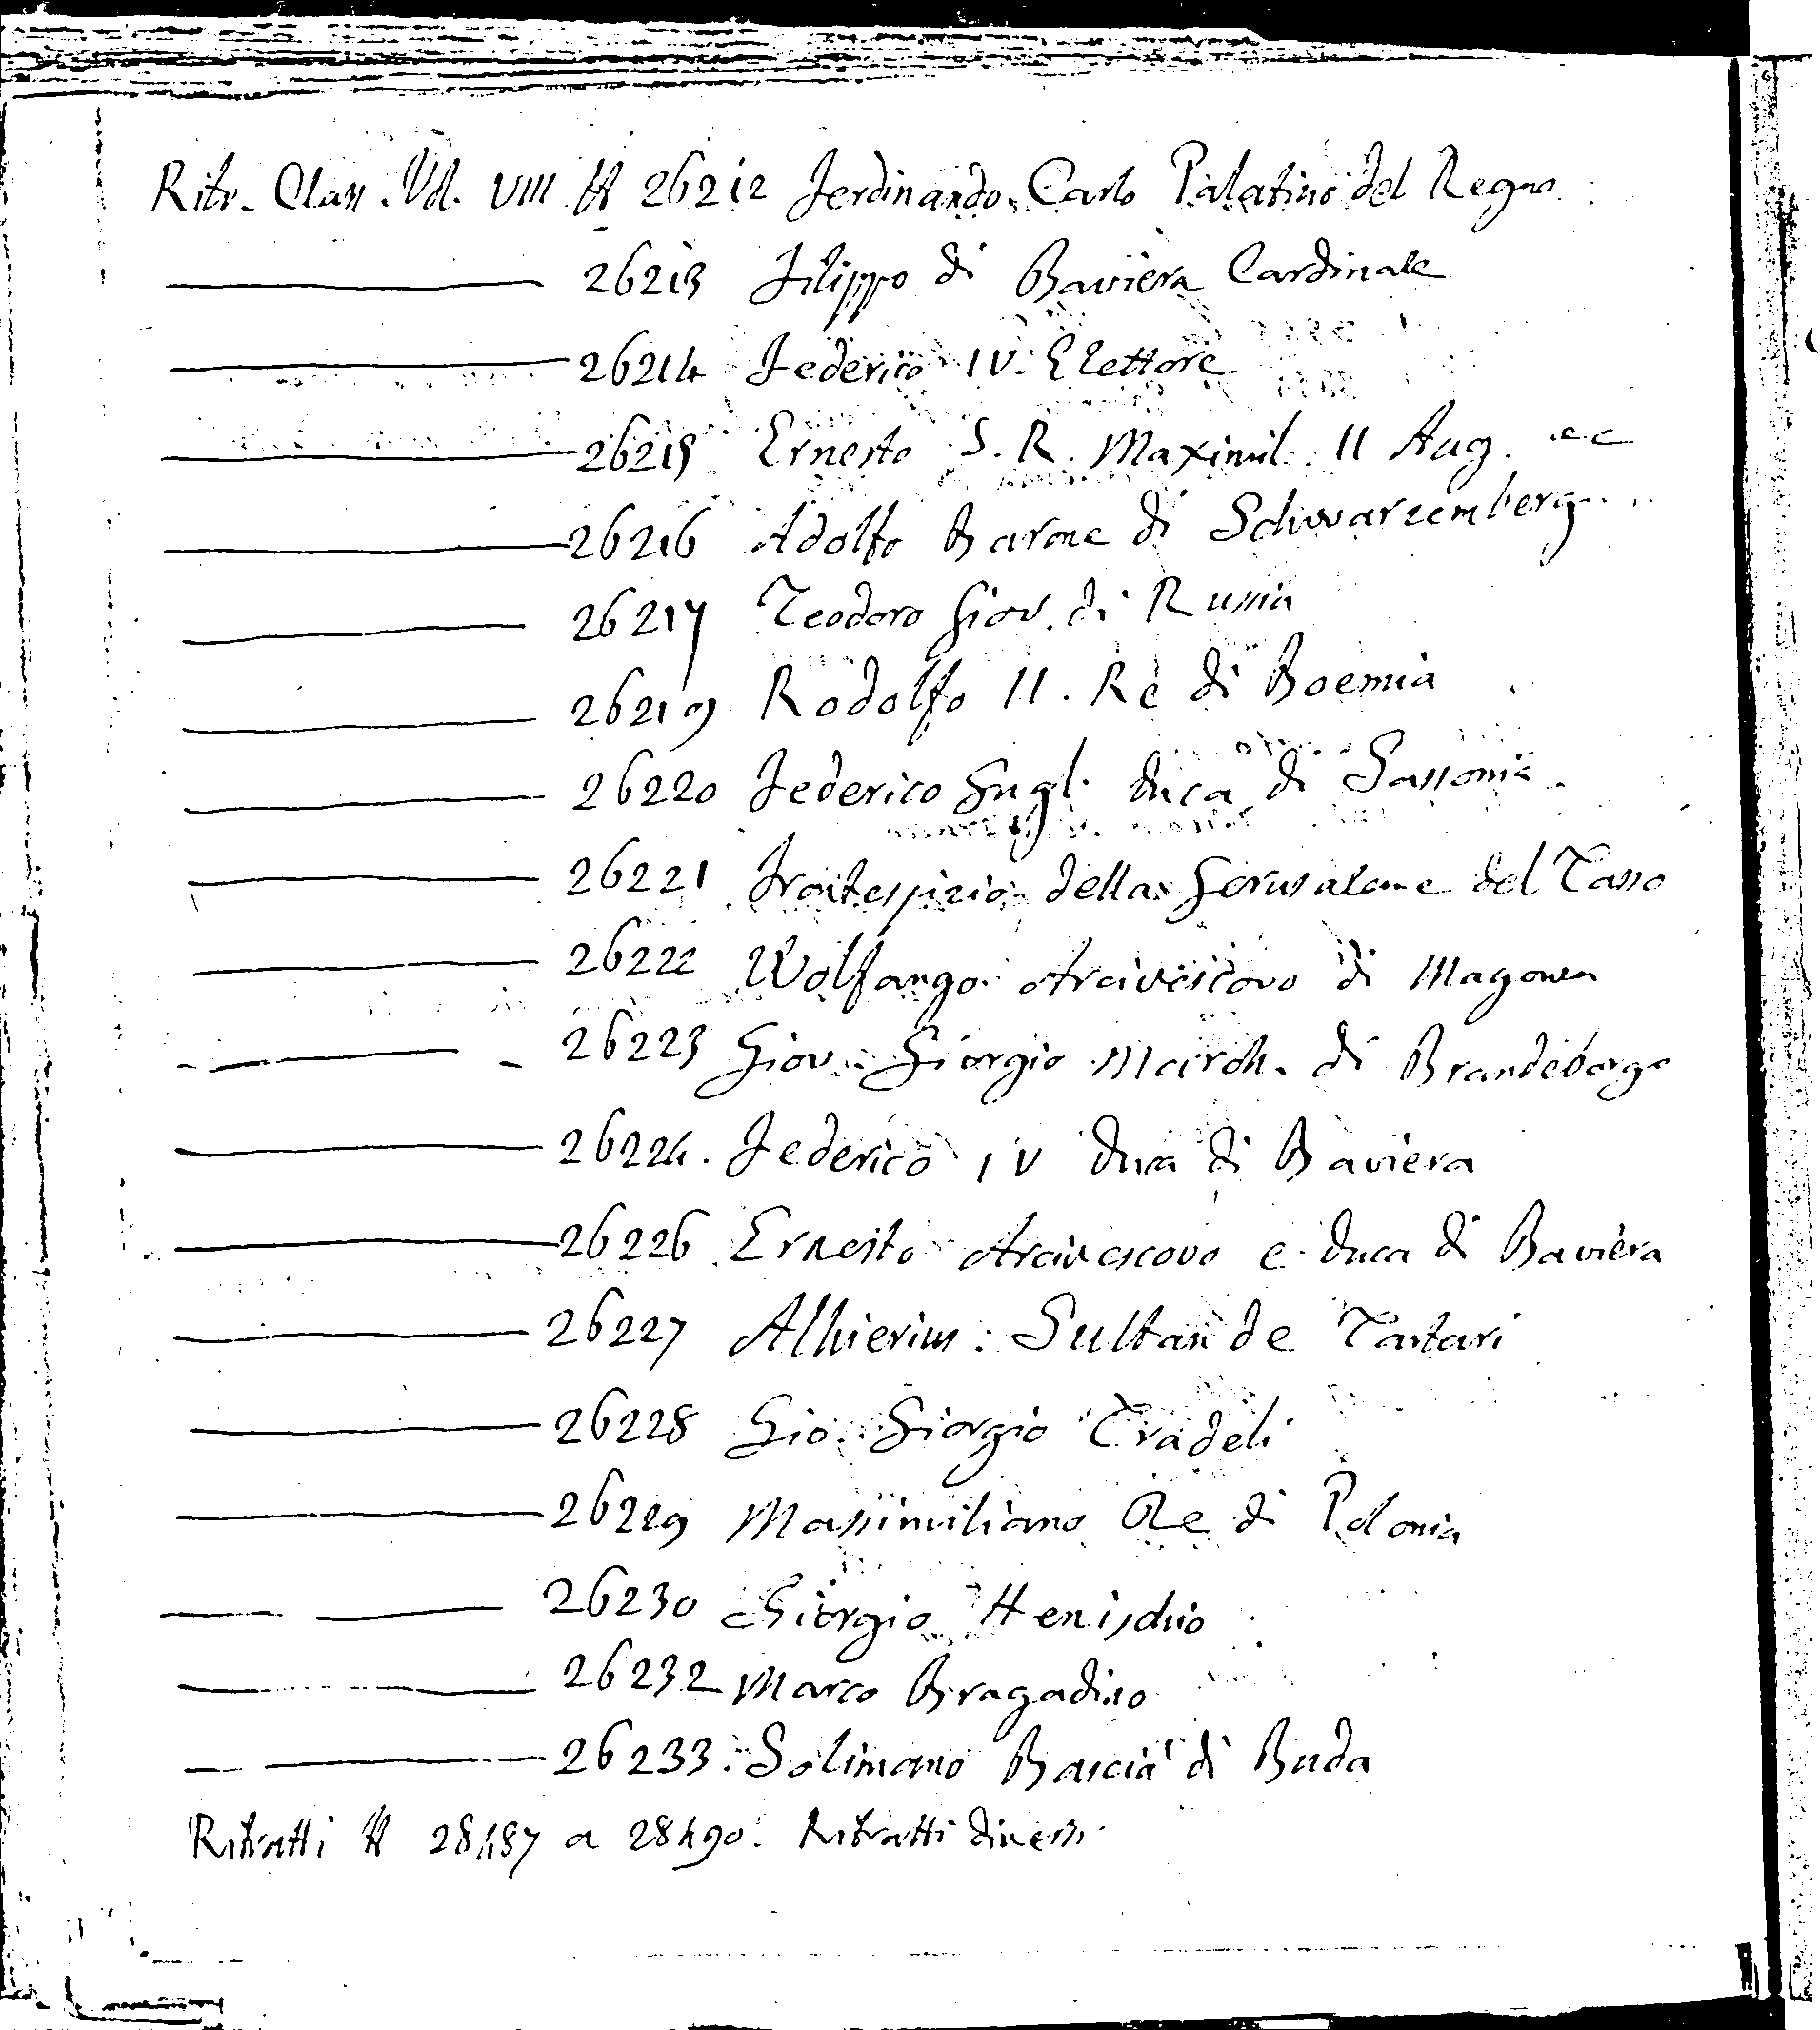 Ritr. Class. Vol. VIII # 26212 Ferdinando Carlo Palatino del Regno
26213 Filippo di Baviera Cardinale
26214 Federico IV. Elettore
26215 Ernesto S. R. Maximil. II Aug. ec
26216 Adolfo Barone di Schwarzemberg
26217 Teodoro Giov. di Russia
26219 Rodolfo II. Re di Boemia
26220 Federico Gugl. Duca di Sassonia
26221 Frontespizio della Gerusaleme del Tasso
26222 Wolfango Arcivescovo di Magonza
26223 Giov. Giorgio March. di Brandeborgo
26224. Federico IV Duca di Baviera
26226 Ernesto Arcivescovo e Duca di Baviera
26227 Sultan de Tartari
26228 Gio. Giorgio Tradeli
26229 Massimiliano Re di Polonia
26230 Giorgio Henischio
26232 Marco Bragadino
26233. Solimano Bascià di Buda
Ritratti # 28487 a 28490. Ritratti diversi